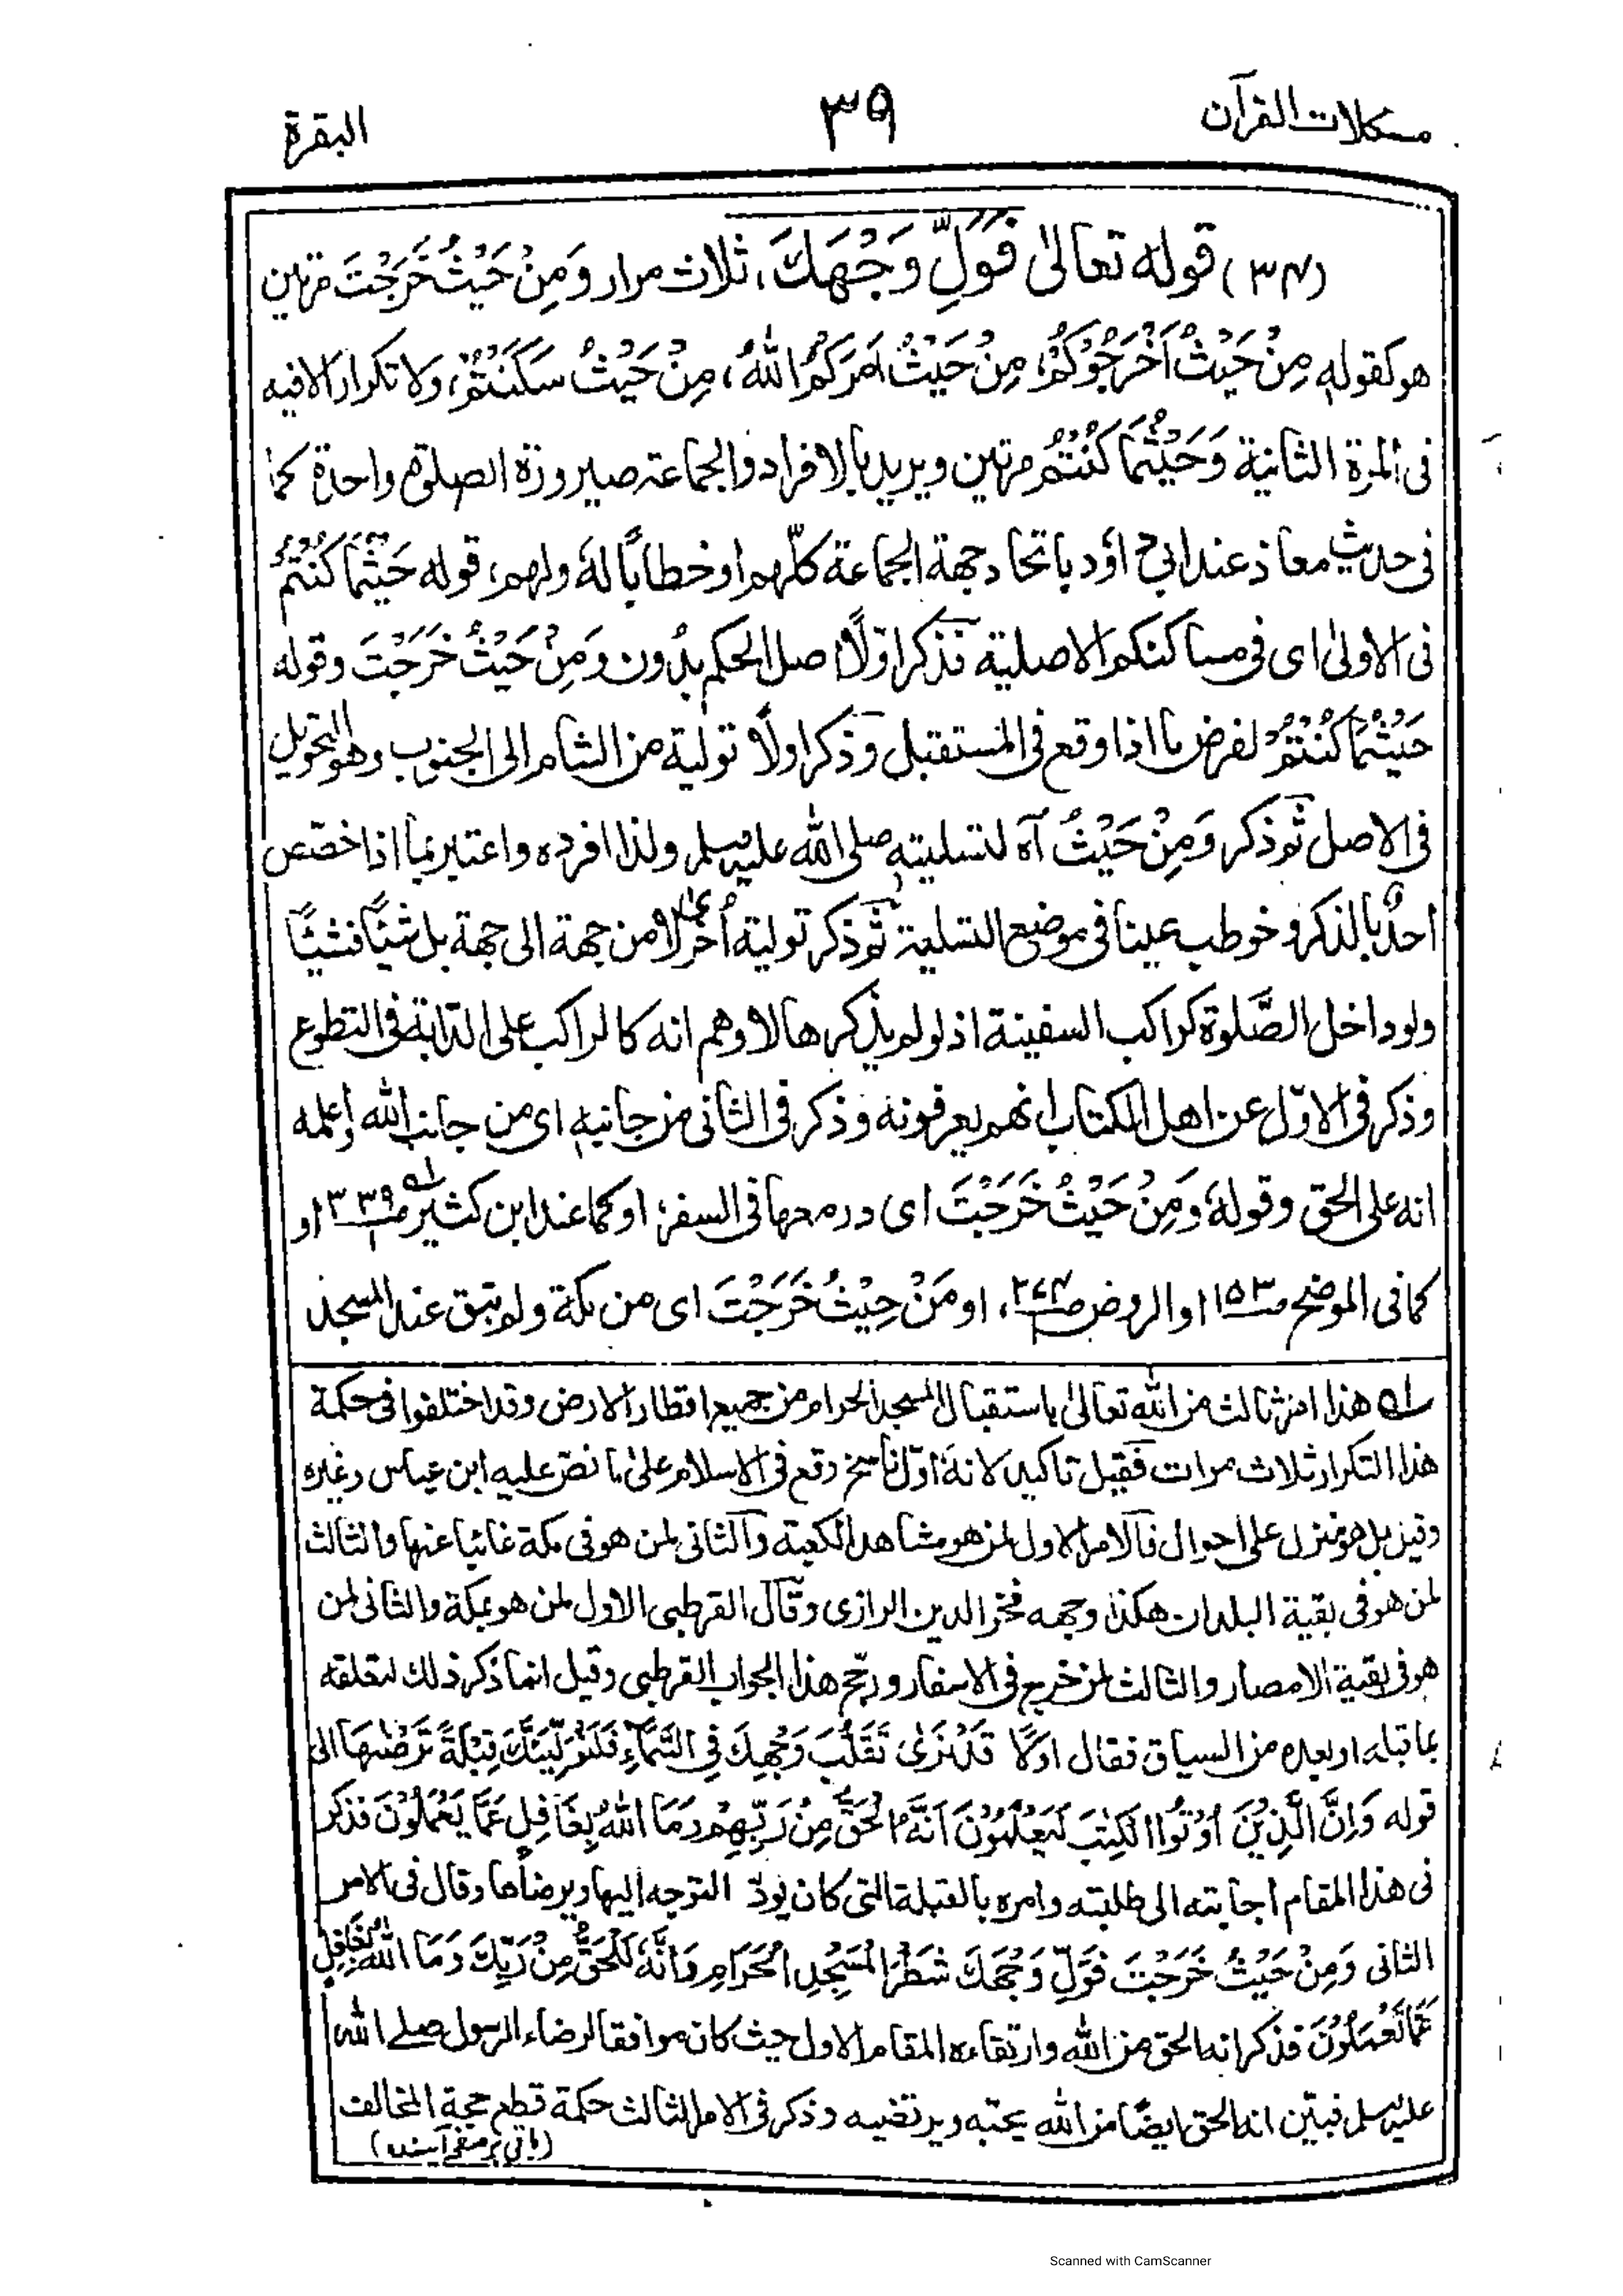 مشكلات القرآن
٣٩
البقرة
(٣٤) قوله تعالىٰ فَوَلِّ وَجْهَكَ، ثلاث مرار وَمِنْ حَيْثُ خَرَجْتَ مرتين
هو كقوله مِنْ حَيْثُ اَخْرَجُوْكُمْ، مِنْ حَيْثُ اَمَرَكُمُ اللهُ، مِنْ حَيْثُ سَكَنْتُمْ، ولا تكرار الا فيه
فى المرة الثانية وَحَيْثُمَا كُنْتُمْ مرتين ويريد بالافراد والجماعة صيرورة الصلوة واحدة كما
فى حديث معاذ عند ابى داؤد باتحاد جهة الجماعة كلّهم اوخطابًا لهٗ ولهم، قوله حَيْثُمَا كُنْتُمْ
فى الاولىٰ اى فى مساكنكم الاصلية فذكر اوّلًا اصل الحكم بدون وَمِنْ حَيْثُ خَرَجْتَ وقوله
حَيْثُمَا كُنْتُمْ لفرض ما اذا وقع فى المستقبل وذكر اولًا تولية من الشام الى الجنوب وهو التحويل
فى الاصل ثم ذكر وَمِنْ حَيْثُ آه لتسليته صلى الله عليه وسلم ولذا افرده واعتبر بما اذا خصّص
احدٌ بالذكر وخوطب عينا فى موضع التسلية ثم ذكر تولية اُخرىٰ لا من جهة الى جهة بل شيئًا فشيئًا
ولو داخل الصّلوة كراكب السفينة اذ لو لم يذكرها لاوهم انه كالراكب على الدابة فى التطوع
وذكر فى الاوّل عن اهل الكتاب انهم يعرفونه وذكر فى الثانى من جانبه اى من جانب الله وأعلمه
انه على الحق وقوله وَمِنْ حَيْثُ خَرَجْتَ اى در معها فى السفر، او كما عند ابن كثير ص٣٣٩/١ او
كما فى الموضح ص١٥٣ او الروض ص٢٧٤، او مِنْ حَيْثُ خَرَجْتَ اى من مكة ولم تبق عند المسجد
ـه هذا امر ثالث من الله تعالىٰ باستقبال المسجد الحرام من جميع اقطار الارض وقد اختلفوا فى حكمة
هذا التكرار ثلاث مرات فقيل تاكيد لانهٗ اوّل ناسخ وقع فى الاسلام علىٰ ما نصّ عليه ابن عباس وغيره
وقيل بل هو منزل على احوال فالامر الاول لمن هو مشاهد الكعبة والثانى لمن هو فى مكة غائبا عنها والثالث
لمن هو فى بقية البلدان هكذا وجهه فخر الدين الرازى وقال القرطبى الاول لمن هو بمكة والثانى لمن
هو فى بقية الامصار والثالث لمن خرج فى الاسفار ورجّح هذا الجواب القرطبى وقيل انما ذكر ذلك لتعلقه
بما قبله او بعده من السياق فقال اولًا قَدْ نَرٰى تَقَلُّبَ وَجْهِكَ فِى السَّمَآءِ فَلَنُوَلِّيَنَّكَ قِبْلَةً تَرْضٰىهَا الى
قوله وَاِنَّ الَّذِيْنَ اُوْتُوا الْكِتٰبَ لَيَعْلَمُوْنَ اَنَّهُ الْحَقُّ مِنْ رَّبِّهِمْ وَمَا اللهُ بِغَافِلٍ عَمَّا يَعْمَلُوْنَ فذكر
فى هذا المقام اجابته الى طلبته وامره بالقبلة التى كان يودّ التوجه اليها ويرضاها وقال فى الامر
الثانى وَمِنْ حَيْثُ خَرَجْتَ فَوَلِّ وَجْهَكَ شَطْرَ الْمَسْجِدِ الْحَرَامِ وَاِنَّهٗ لَلْحَقُّ مِنْ رَّبِّكَ وَمَا اللهُ بِغَافِلٍ
عَمَّا تَعْمَلُوْنَ فذكر انه الحق من الله وارتقاءه المقام الاول حيث كان موافقا لرضاء الرسول صلى الله
عليه وسلم فبيّن انه الحق ايضًا من الله يحبّه ويرتضيه وذكر فى الامر الثالث حكمة قطع حجة المخالف
(باقى بر صفحۂ آئنده)
Scanned with CamScanner